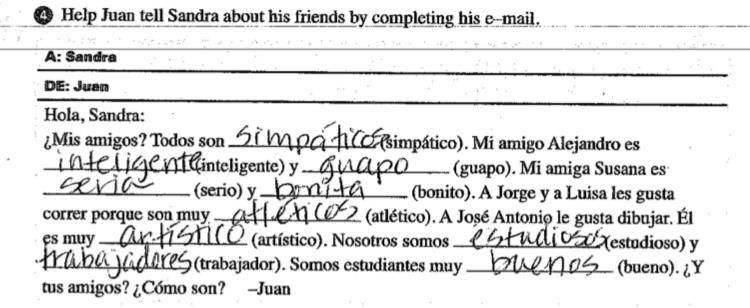 4 Help Juan tell Sandra about his friends by completing his e-mail.
A: Sandra
DE: Juan
Hola, Sandra:
¿Mis amigos? Todos son simpáticos (simpático). Mi amigo Alejandro es
inteligente (inteligente) y guapo (guapo). Mi amiga Susana es
seria (serio) y bonita (bonito). A Jorge y a Luisa les gusta
correr porque son muy atléticos (atlético). A José Antonio le gusta dibujar. Él
es muy artístico (artístico). Nosotros somos estudiosos (estudioso) y
trabajadores (trabajador). Somos estudiantes muy buenos (bueno). ¿Y
tus amigos? ¿Cómo son? –Juan